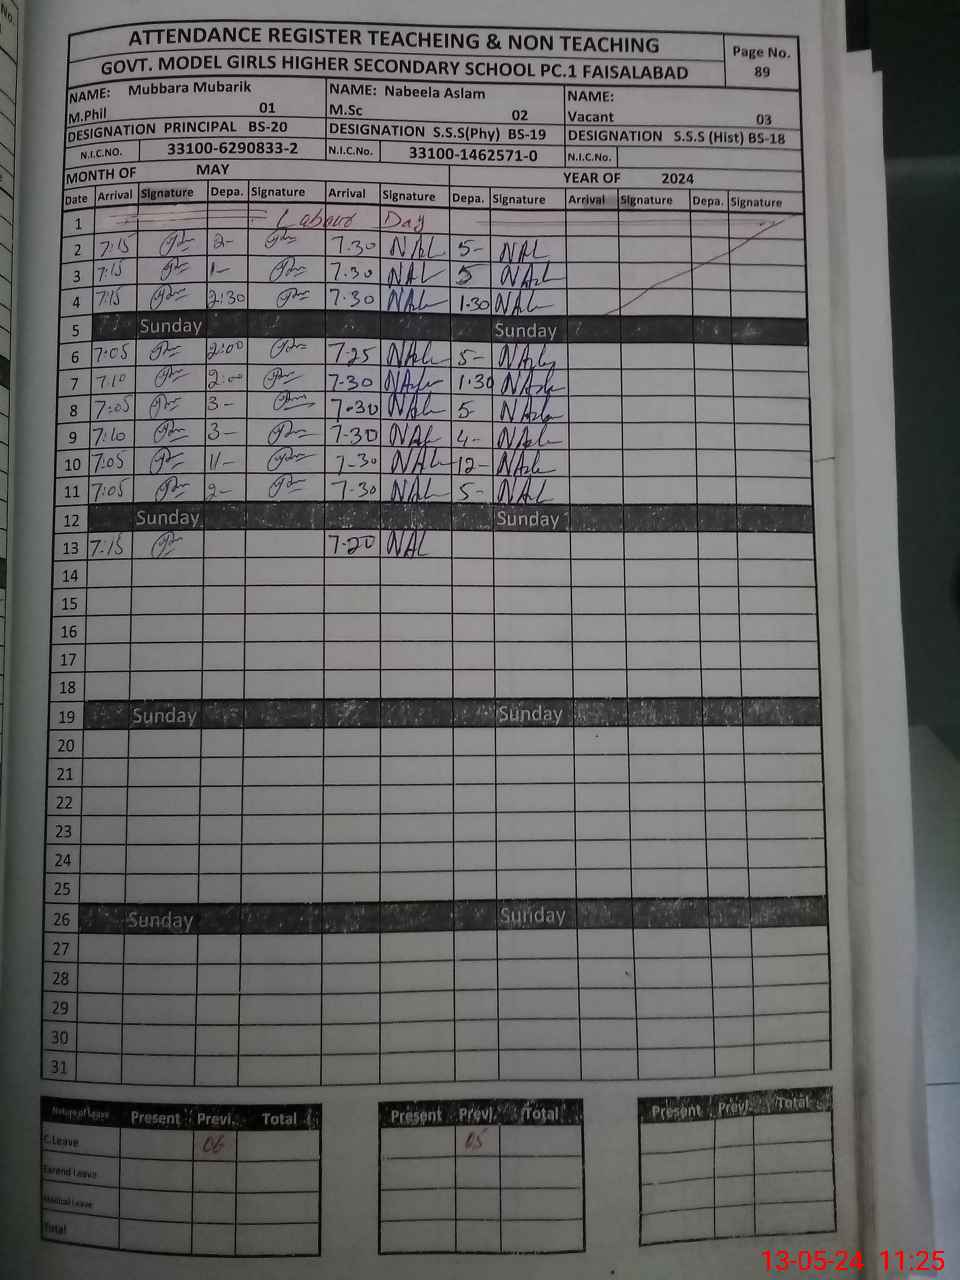 No.
ATTENDANCE REGISTER TEACHEING & NON TEACHING
GOVT. MODEL GIRLS HIGHER SECONDARY SCHOOL PC.1 FAISALABAD
Page No.
89
NAME: Mubbara Mubarik NAME: Nabeela Aslam NAME:
M.Phil 01 M.Sc 02 Vacant 03
DESIGNATION PRINCIPAL BS-20 DESIGNATION S.S.S(Phy) BS-19 DESIGNATION S.S.S (Hist) BS-18
N.I.C.NO. 33100-6290833-2 N.I.C.No. 33100-1462571-0 N.I.C.No.
MONTH OF MAY YEAR OF 2024
Date Arrival Signature Depa. Signature Arrival Signature Depa. Signature Arrival Signature Depa. Signature
1 Labour Day
2 7:15 2- 7.30 NAL 5- NAL
3 7:15 1- 7.30 NAL 5 NAL
4 7:15 2:30 7.30 NAL 1.30 NAL
5 Sunday Sunday
6 7:05 2:00 7.25 5-
7 7:10 2:00 7-30 1.30
8 7:05 3- 7-30 5-
9 7:10 3- 7-30 NAL 4-
10 7:05 11- 7-30 NAL 12-
11 7:05 2- 7-30 NAL 5- NAL
12 Sunday Sunday
13 7:15 7-20 NAL
14
15
16
17
18
19 Sunday Sunday
20
21
22
23
24
25
26 Sunday Sunday
27
28
29
30
31
Nature of Leave Present Previ. Total Present Previ. Total Present Previ. Total
C.Leave 06 05
Earend Leave
Medical Leave
Total
13-05-24 11:25